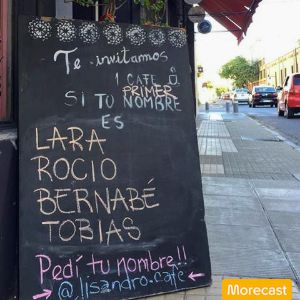 Te invitamos
1 CAFE
SI TU PRIMER NOMBRE
ES
LARA
ROCIO
BERNABÉ
TOBIAS
Pedí tu nombre!!
@lisandro.cafe
Morecast